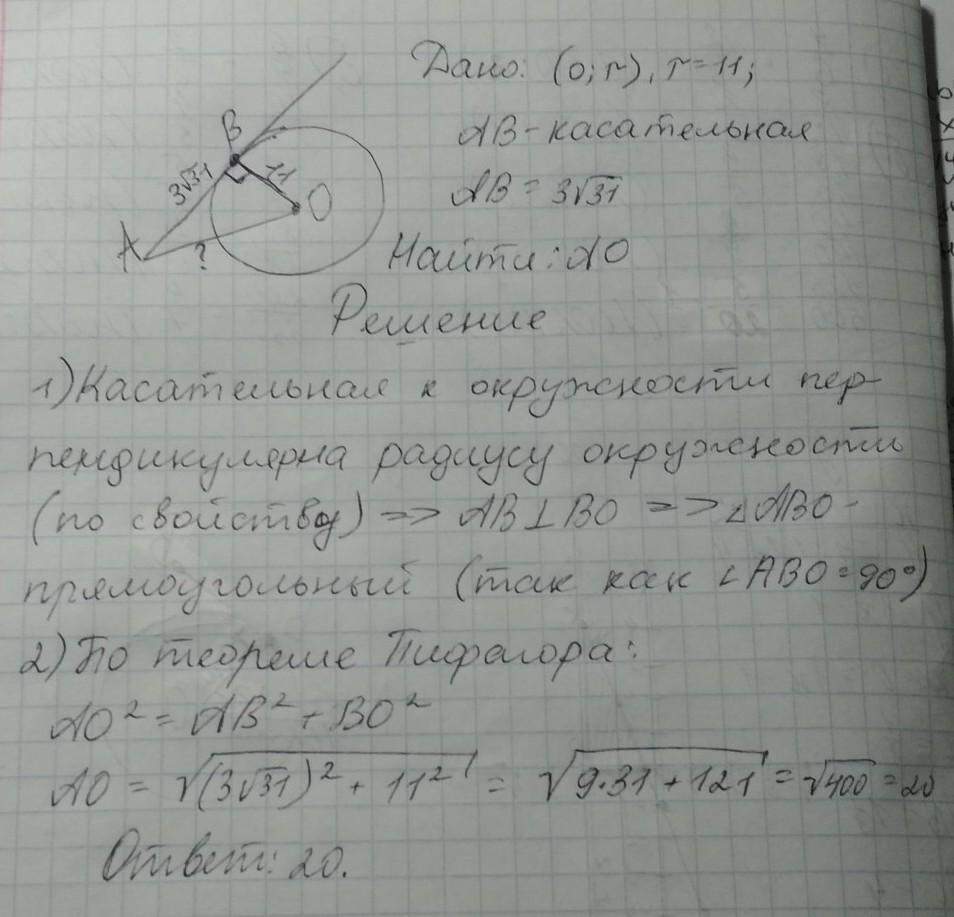 Дано: (О; r), r = 11;
B
AB - касательная
3√31
11
AB = 3√31
O
A
?
Найти: AO
Решение
1) Касательная к окружности пер-
пендикулярна радиусу окружности
(по свойству) => AB ⊥ BO => △ABO -
прямоугольный (так как ∠ABO = 90°)
2) По теореме Пифагора:
AO² = AB² + BO²
AO = √(3√31)² + 11² = √9·31 + 121 = √400 = 20
Ответ: 20.